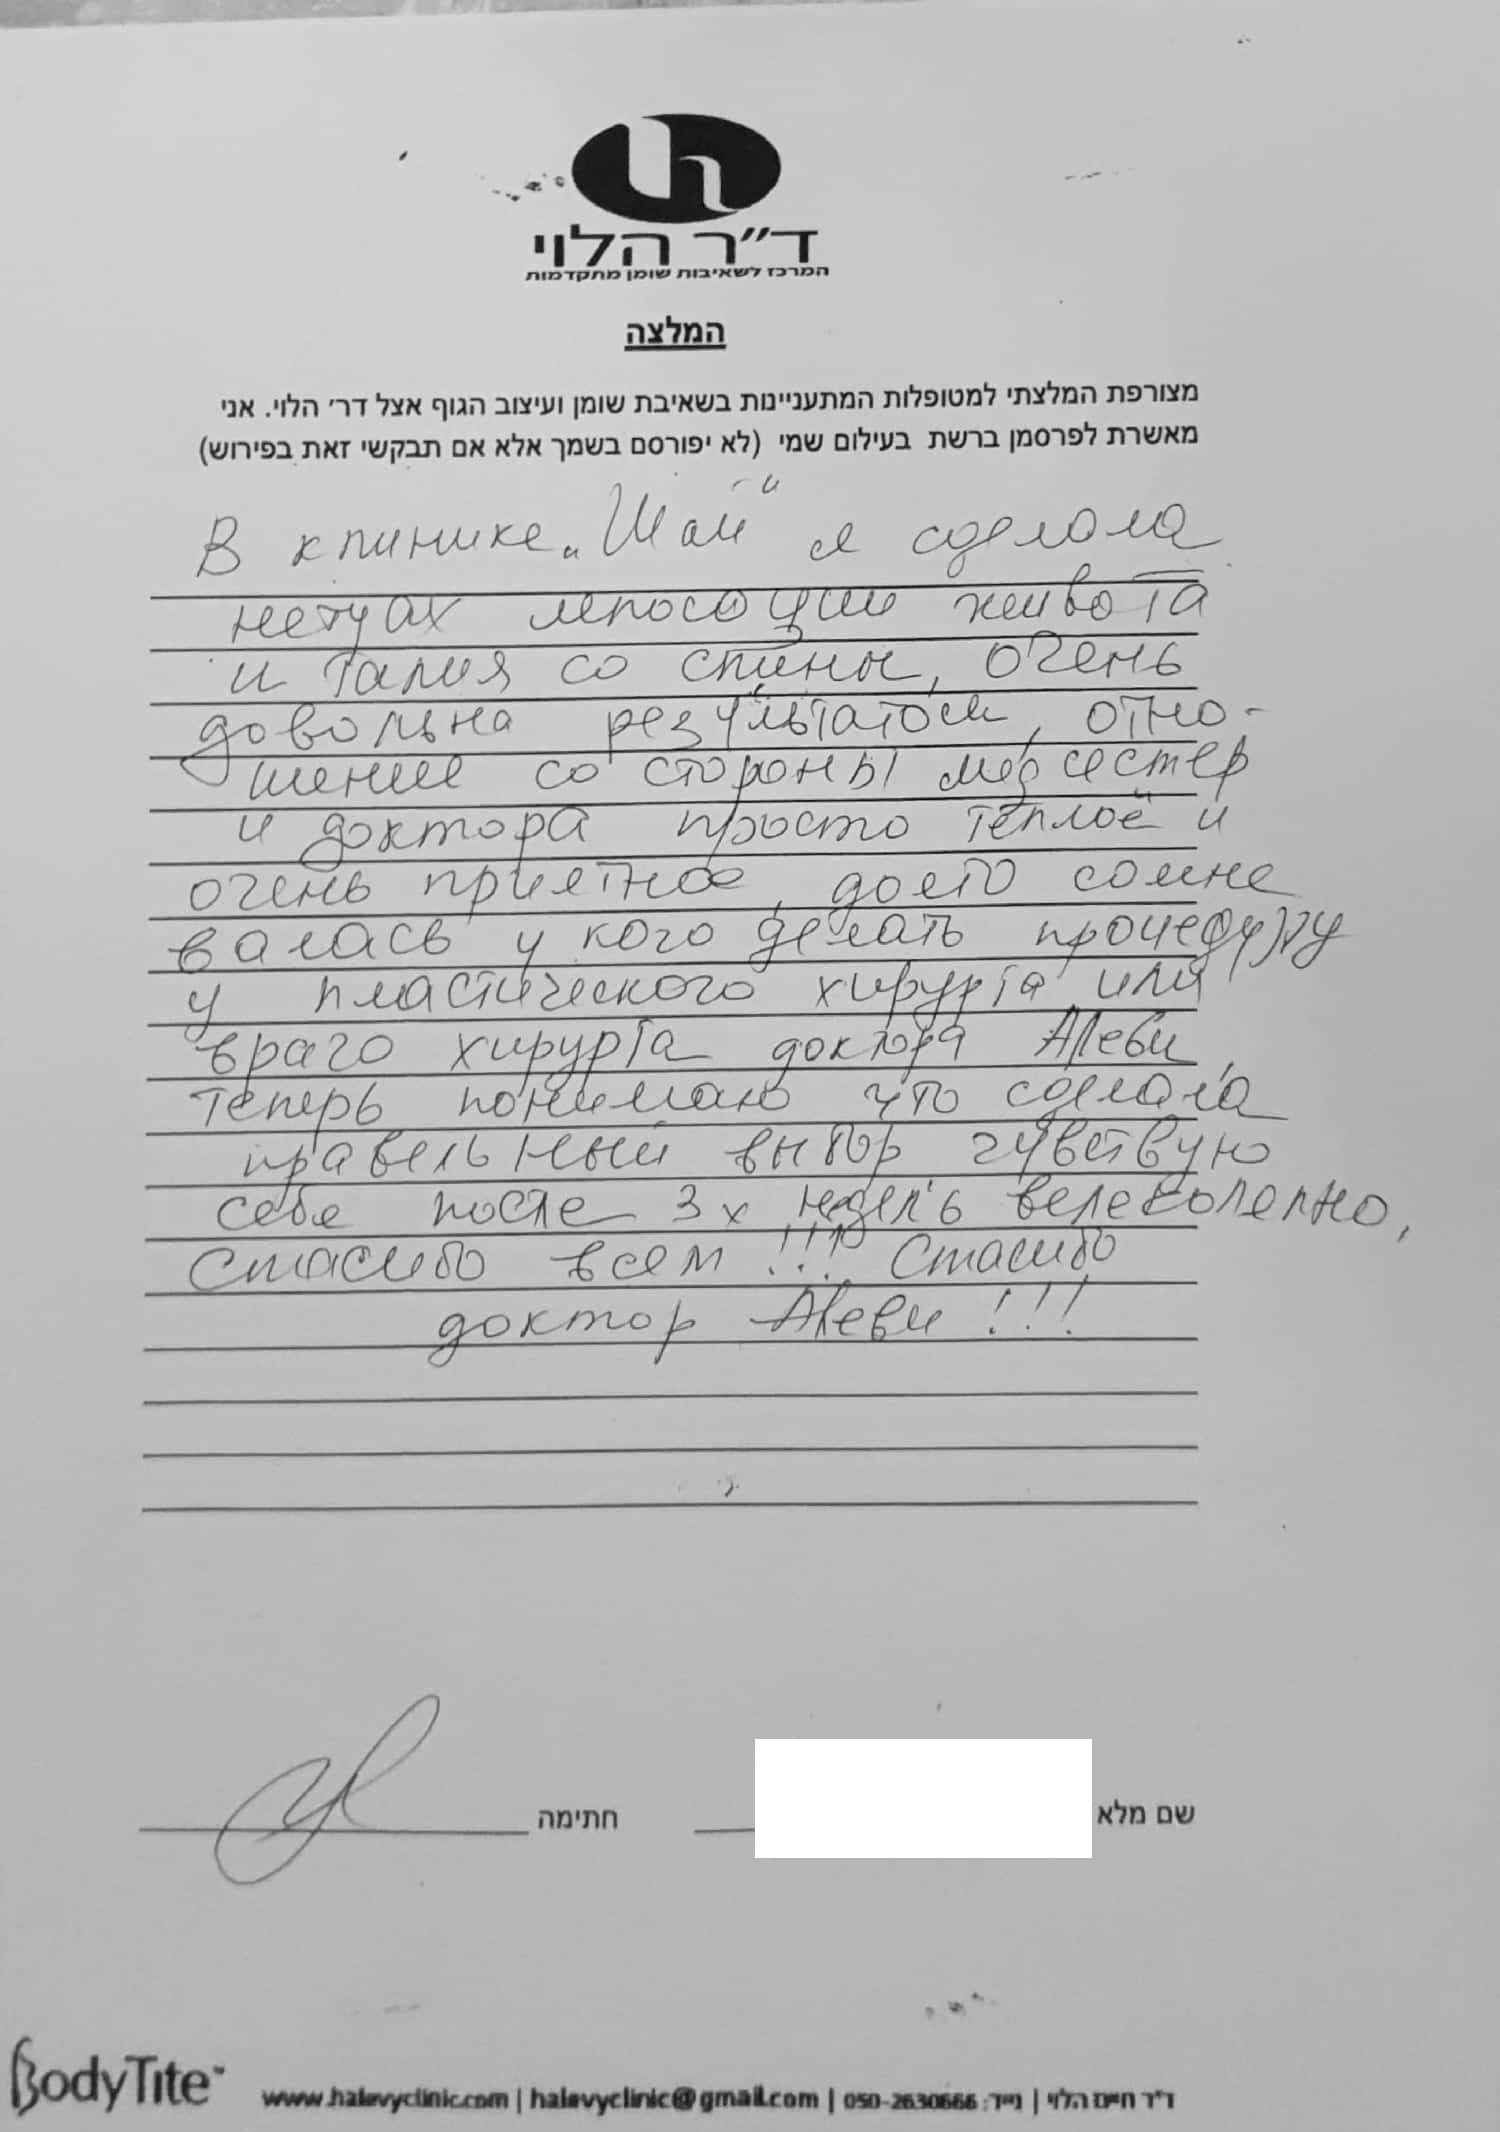 ד״ר הלוי
המרכז לשאיבות שומן מתקדמות
המלצה
מצורפת המלצתי למטופלות המתעניינות בשאיבת שומן ועיצוב הגוף אצל דר׳ הלוי. אני
מאשרת לפרסמן ברשת בעילום שמי (לא יפורסם בשמך אלא אם תבקשי זאת בפירוש)
В клинике „Шай" я сделала
нетуах липосакции живота
и талия со спины, очень
довольна результатом, отно-
шение со стороны медсестер
и доктора просто тёплое и
очень приятное, долго сомне
валась у кого делать процедуру
у пластического хирурга или
хирурга доктора Алеви,
теперь понимаю что сделала
правельный выбор чувствую
себе после 3х недель велеколепно,
Спасибо всем !!! Спасибо
доктор Алеви !!!
שם מלא
חתימה
BodyTite™
www.halevyclinic.com | halevyclinic@gmail.com | ד״ר חיים הלוי | נייד: 050-2630666